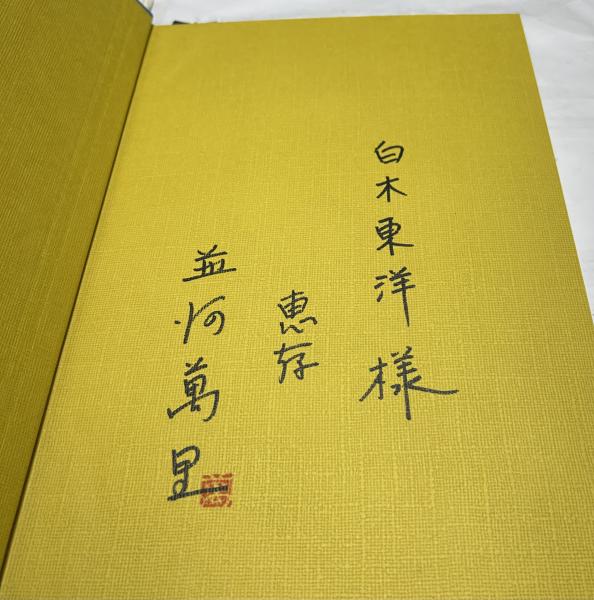 白木東洋様
惠存
並河萬里